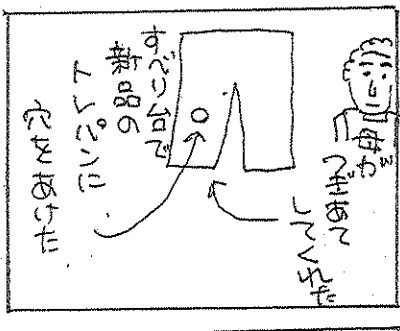 母が
つぎあて
してくれた
すべり台で
新品の
トレパンに
穴をあけた